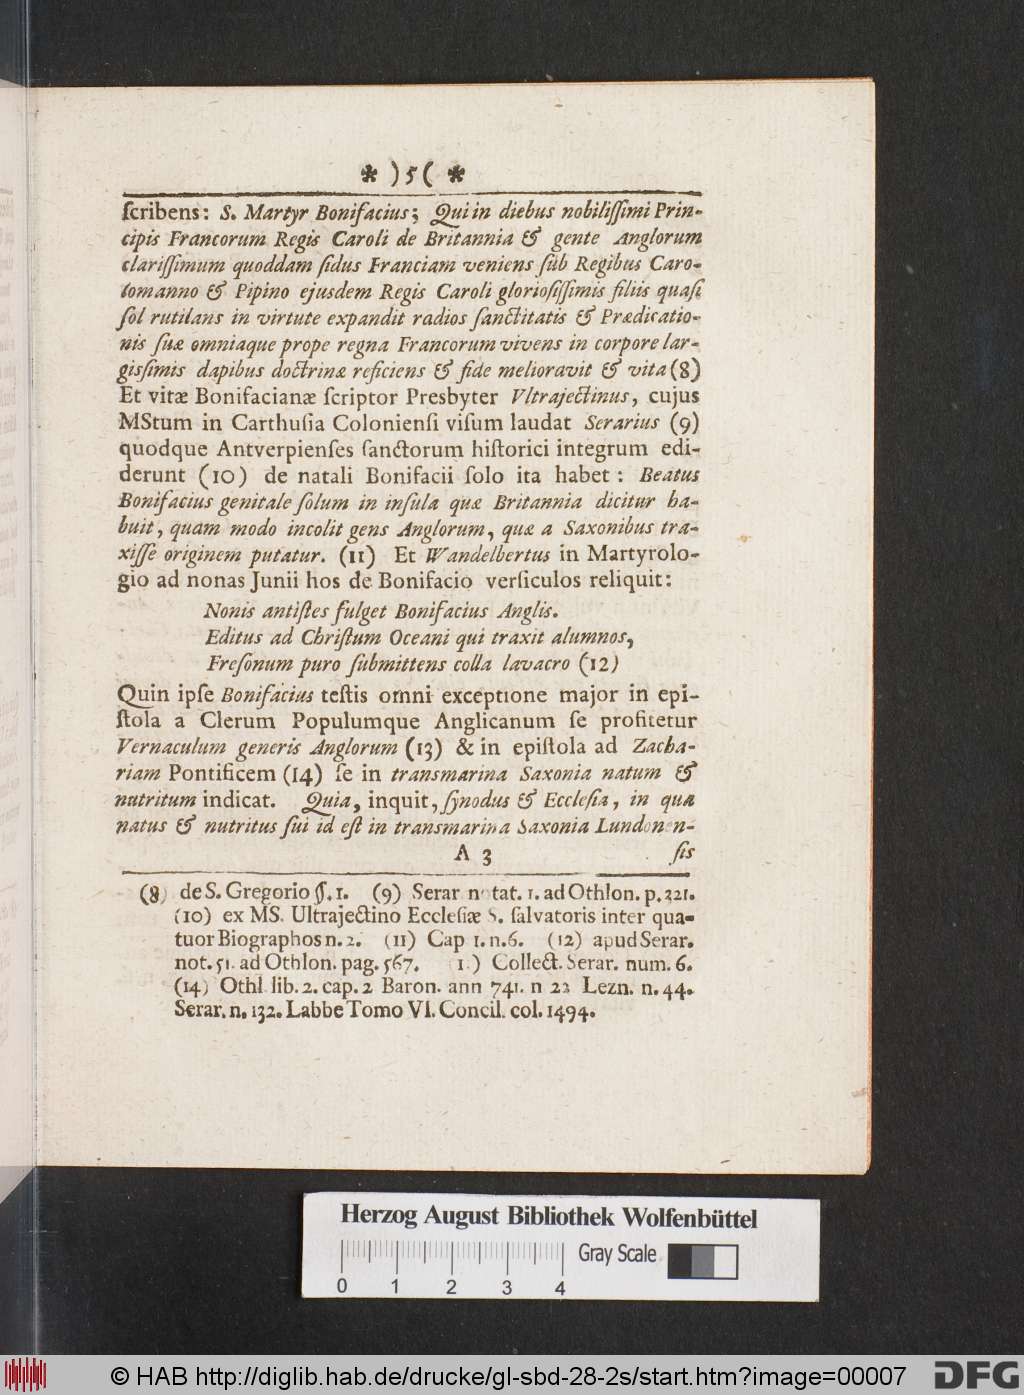 ✻ ) 5 ( ✻
ſcribens: S. Martyr Bonifacius; Qui in diebus nobiliſſimi Prin-
cipis Francorum Regis Caroli de Britannia & gente Anglorum
clariſſimum quoddam ſidus Franciam veniens ſub Regibus Caro-
lomanno & Pipino ejusdem Regis Caroli glorioſiſſimis filiis quaſi
ſol rutilans in virtute expandit radios ſanctitatis & Prædicatio-
nis ſuæ omniaque prope regna Francorum vivens in corpore lar-
gisſimis dapibus doctrinæ reficiens & fide melioravit & vita (8)
Et vitæ Bonifacianæ ſcriptor Presbyter Vltrajectinus, cujus
MStum in Carthuſia Colonienſi viſum laudat Serarius (9)
quodque Antverpienſes ſanctorum hiſtorici integrum edi-
derunt (10) de natali Bonifacii ſolo ita habet: Beatus
Bonifacius genitale ſolum in inſula quæ Britannia dicitur ha-
buit, quam modo incolit gens Anglorum, quæ a Saxonibus tra-
xiſſe originem putatur. (11) Et Wandelbertus in Martyrolo-
gio ad nonas Junii hos de Bonifacio verſiculos reliquit:
Nonis antiſtes fulget Bonifacius Anglis.
Editus ad Chriſtum Oceani qui traxit alumnos,
Freſonum puro ſubmittens colla lavacro (12)
Quin ipſe Bonifacius teſtis omni exceptione major in epi-
ſtola a Clerum Populumque Anglicanum ſe profitetur
Vernaculum generis Anglorum (13) & in epiſtola ad Zacha-
riam Pontificem (14) ſe in transmarina Saxonia natum &
nutritum indicat. Quia, inquit, ſynodus & Eccleſia, in qua
natus & nutritus fui id eſt in transmarina Saxonia Lundonen-
A 3 ſis
(8) de S. Gregorio ſſ. 1. (9) Serar notat. 1. ad Othlon. p. 321.
(10) ex MS. Ultrajectino Eccleſiæ S. ſalvatoris inter qua-
tuor Biographos n. 2. (11) Cap 1. n. 6. (12) apud Serar.
not. 51. ad Othlon. pag. 567. (1 ) Collect. Serar. num. 6.
(14) Othl. lib. 2. cap. 2 Baron. ann 741. n 22 Lezn. n. 44.
Serar. n. 132. Labbe Tomo VI. Concil. col. 1494.
Herzog August Bibliothek Wolfenbüttel
Gray Scale
0 1 2 3 4
© HAB http://diglib.hab.de/drucke/gl-sbd-28-2s/start.htm?image=00007
DFG